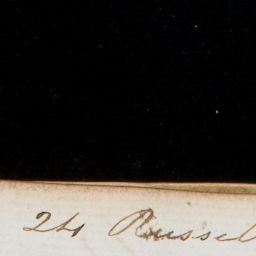 24 Russel